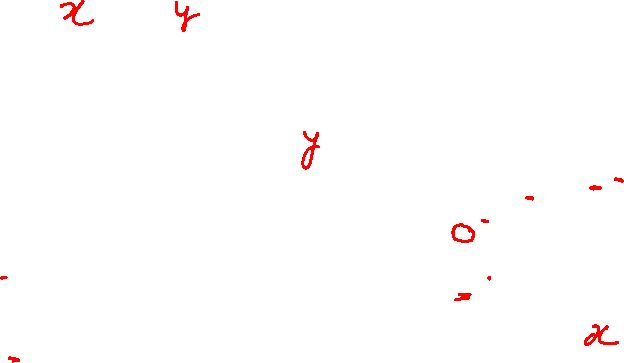 x y
y
0
=
x